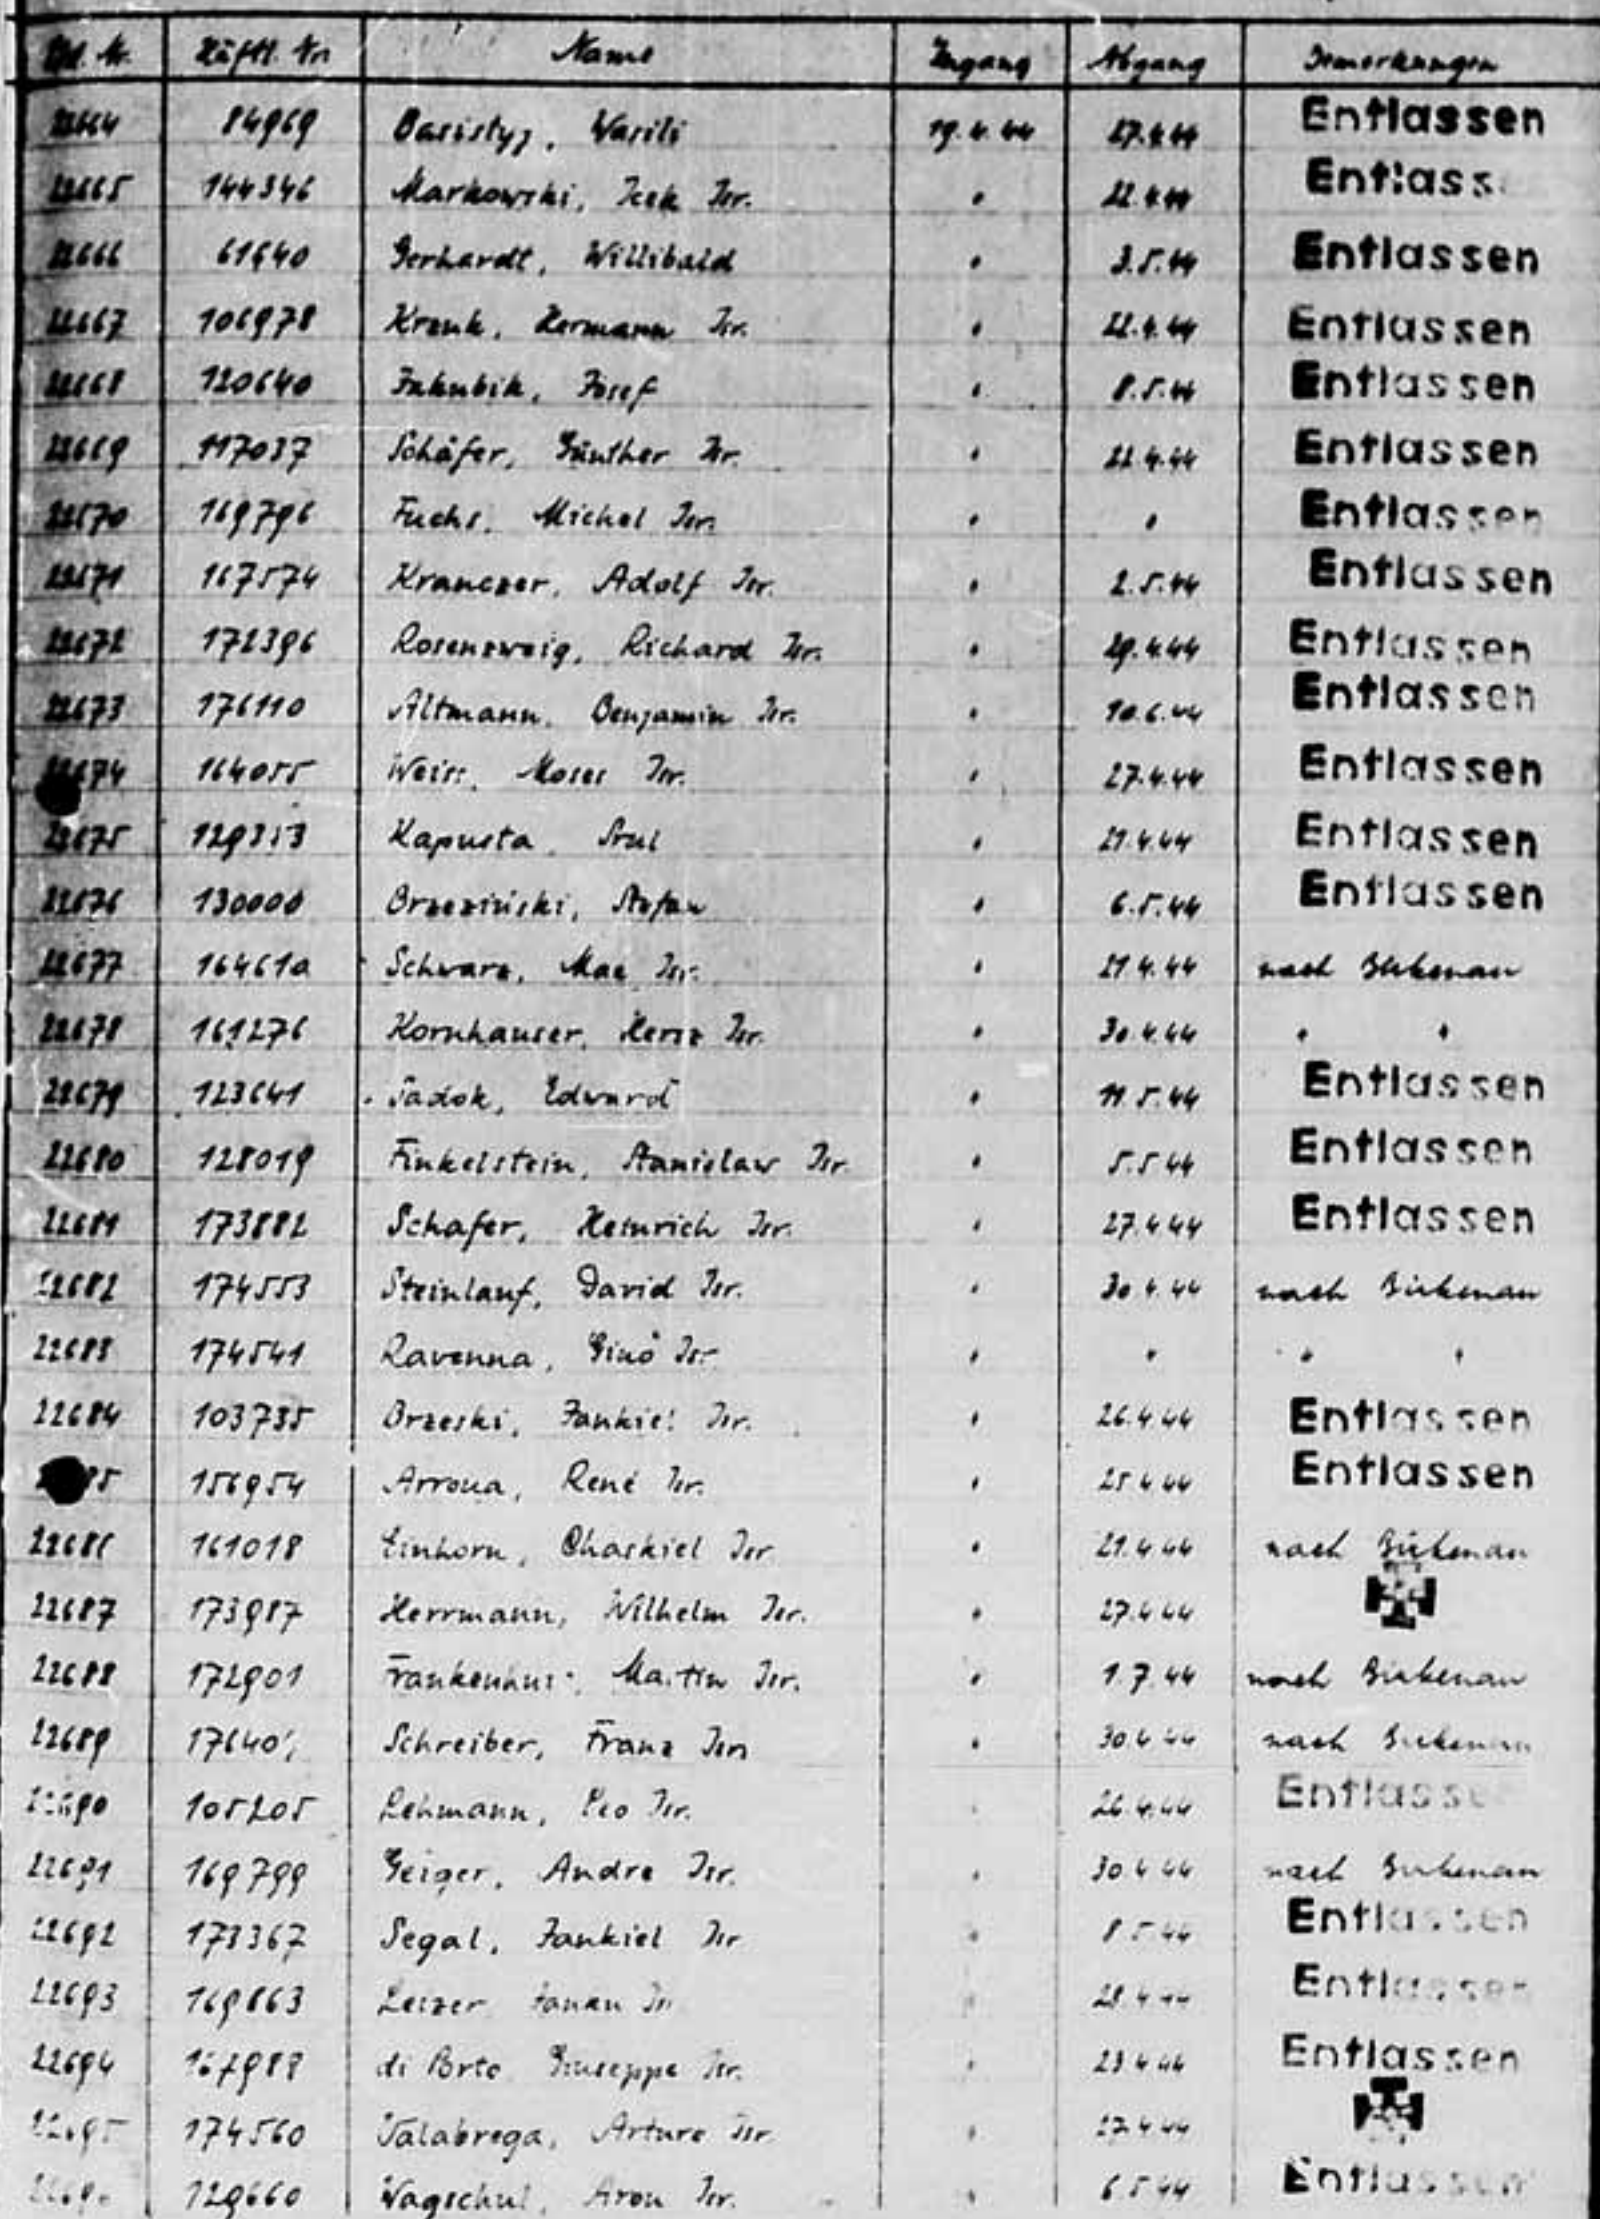 Lfd. Nr. Häftl. Nr. Name Zugang Abgang Bemerkungen
22664 84969 Basistyj, Wasili 19.4.44 27.4.44 Entlassen
22665 144346 Markowski, Icek Isr. " 22.4.44 Entlass
22666 61640 Gerhardt, Willibald " 3.5.44 Entlassen
22667 106978 Krenk, Hermann Isr. " 22.4.44 Entlassen
22668 120640 Jakubik, Josef " 8.5.44 Entlassen
22669 117037 Schäfer, Günther Isr. " 22.4.44 Entlassen
22670 169796 Fuchs, Michel Isr. " " Entlassen
22671 167574 Kranczer, Adolf Isr. " 2.5.44 Entlassen
22672 172396 Rosenzweig, Richard Isr. " 29.4.44 Entlassen
22673 176110 Altmann, Benjamin Isr. " 10.6.44 Entlassen
22674 164055 Weiss, Moses Isr. " 27.4.44 Entlassen
22675 129313 Kapusta, Srul " 21.4.44 Entlassen
22676 130000 Brzeziński, Stefan " 6.5.44 Entlassen
22677 164610 Schwarz, Max Isr. " 21.4.44 nach Birkenau
22678 161276 Kornhauser, Hersz Isr. " 30.4.44 " "
22679 123641 Sadok, Edward " 11.5.44 Entlassen
22680 128019 Finkelstein, Stanislaw Isr. " 5.5.44 Entlassen
22681 173882 Schafer, Heinrich Isr. " 27.4.44 Entlassen
22682 174553 Steinlauf, David Isr. " 30.4.44 nach Birkenau
22683 174541 Ravenna, Gino Isr. " " " "
22684 103735 Brzeski, Jankiel Isr. " 26.4.44 Entlassen
85 156954 Arroua, René Isr. " 25.4.44 Entlassen
22686 161018 Einhorn, Chaskiel Isr " 21.4.44 nach Birkenau
22687 173987 Herrmann, Wilhelm Isr. " 27.4.44
22688 172901 Martin Isr. " 1.7.44 nach Birkenau
22689 Schreiber, Franz Isr. " 30.4.44 nach Birkenau
22690 105205 Lehmann, Leo Isr. 26.4.44 Entlasse
22691 169799 Geiger, Andre Isr. " 30.4.44 nach Birkenau
22692 173367 Segal, Jankiel Isr " 8.5.44 Entlassen
22693 169863 Leizer Isr 28.4.44 Entlassen
22694 167988 di Porto Giuseppe Isr. " 23.4.44 Entlassen
22695 174560 Valabrega, Arturo Isr. " 27.4.44
129660 Wagschul, Aron Isr. " 6.5.44 Entlassen